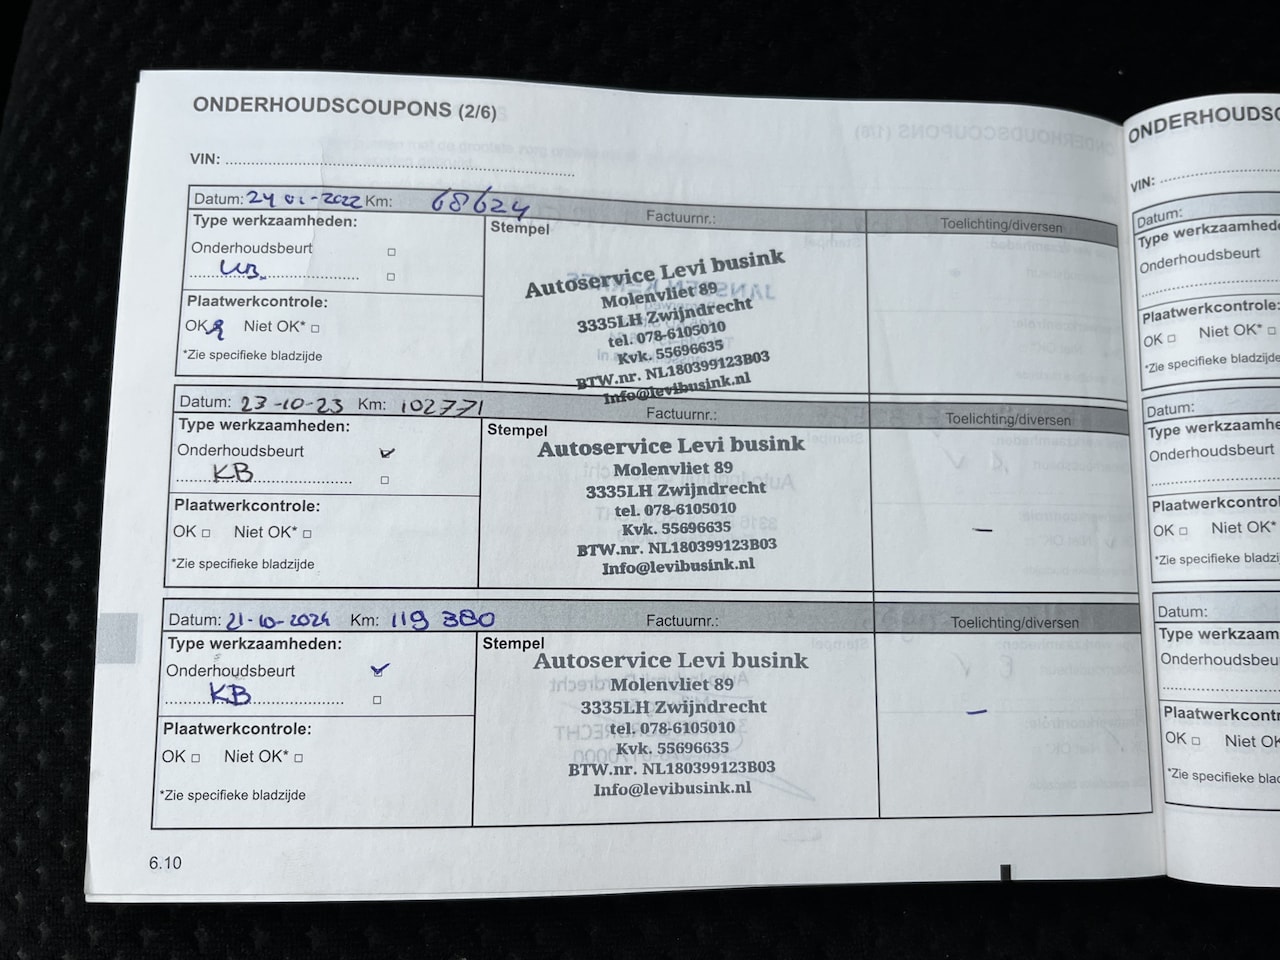 ONDERHOUDSCOUPONS (2/6)
VIN:
Datum: 24-01-2022 Km: 68624 Factuurnr.: Toelichting/diversen
Type werkzaamheden: Stempel
Onderhoudsbeurt
Autoservice Levi busink
Molenvliet 89
3335LH Zwijndrecht
tel. 078-6105010
Kvk. 55696635
BTW.nr. NL180399123B03
Info@levibusink.nl
Plaatwerkcontrole:
OK Niet OK*
*Zie specifieke bladzijde
Datum: 23-10-23 Km: 102771 Factuurnr.: Toelichting/diversen
Type werkzaamheden: Stempel
Onderhoudsbeurt
KB
Autoservice Levi busink
Molenvliet 89
3335LH Zwijndrecht
tel. 078-6105010
Kvk. 55696635
BTW.nr. NL180399123B03
Info@levibusink.nl
Plaatwerkcontrole:
OK Niet OK*
*Zie specifieke bladzijde
Datum: 21-10-2024 Km: 119 380 Factuurnr.: Toelichting/diversen
Type werkzaamheden: Stempel
Onderhoudsbeurt
KB
Autoservice Levi busink
Molenvliet 89
3335LH Zwijndrecht
tel. 078-6105010
Kvk. 55696635
BTW.nr. NL180399123B03
Info@levibusink.nl
Plaatwerkcontrole:
OK Niet OK*
*Zie specifieke bladzijde
6.10
ONDERHOUDSC
VIN:
Datum:
Type werkzaamhede
Onderhoudsbeurt
Plaatwerkcontrole:
OK Niet OK*
*Zie specifieke bladzijde
Datum:
Type werkzaamhe
Onderhoudsbeurt
Plaatwerkcontrol
OK Niet OK*
*Zie specifieke bladzi
Datum:
Type werkzaam
Onderhoudsbeu
Plaatwerkcontr
OK Niet OK
*Zie specifieke blad